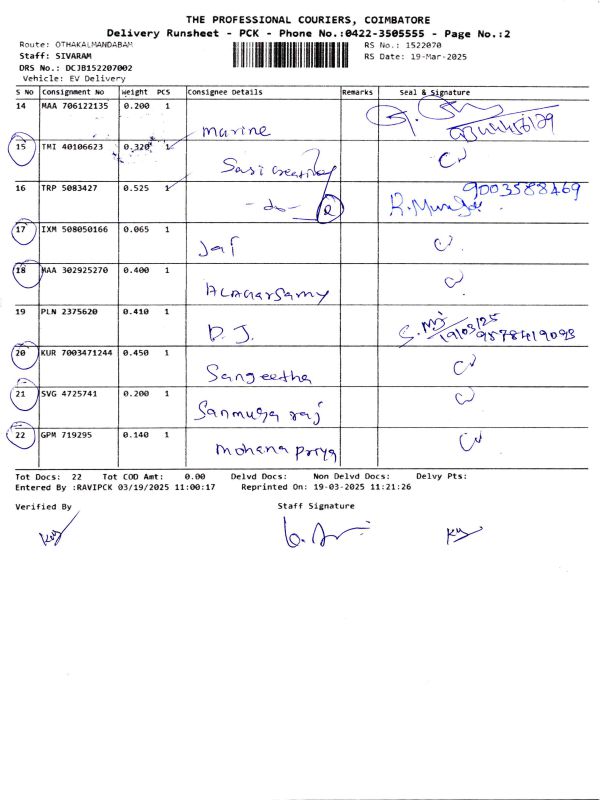 THE PROFESSIONAL COURIERS, COIMBATORE
Delivery Runsheet - PCK - Phone No.:0422-3505555 - Page No.:2
Route: OTHAKALMANDABAM RS No.: 1522070
Staff: SIVARAM RS Date: 19-Mar-2025
DRS No.: DCJB152207002
Vehicle: EV Delivery
S NO Consignment No Weight PCS Consignee Details Remarks Seal & Signature
14 MAA 706122135 0.200 1 marine
15 TMI 40106623 0.320 1 Sasi creatives
16 TRP 5083427 0.525 1 -do- R 9003588469
17 IXM 508050166 0.065 1 Jaf
18 MAA 302925270 0.400 1 ALAGARSAMY
19 PLN 2375620 0.410 1 D.J. 19/03/25 9578419093
20 KUR 7003471244 0.450 1 Sangeetha
21 SVG 4725741 0.200 1 Sanmuga raj
22 GPM 719295 0.140 1 mohana priya
Tot Docs: 22 Tot COD Amt: 0.00 Delvd Docs: Non Delvd Docs: Delvy Pts:
Entered By :RAVIPCK 03/19/2025 11:00:17 Reprinted On: 19-03-2025 11:21:26
Verified By Staff Signature